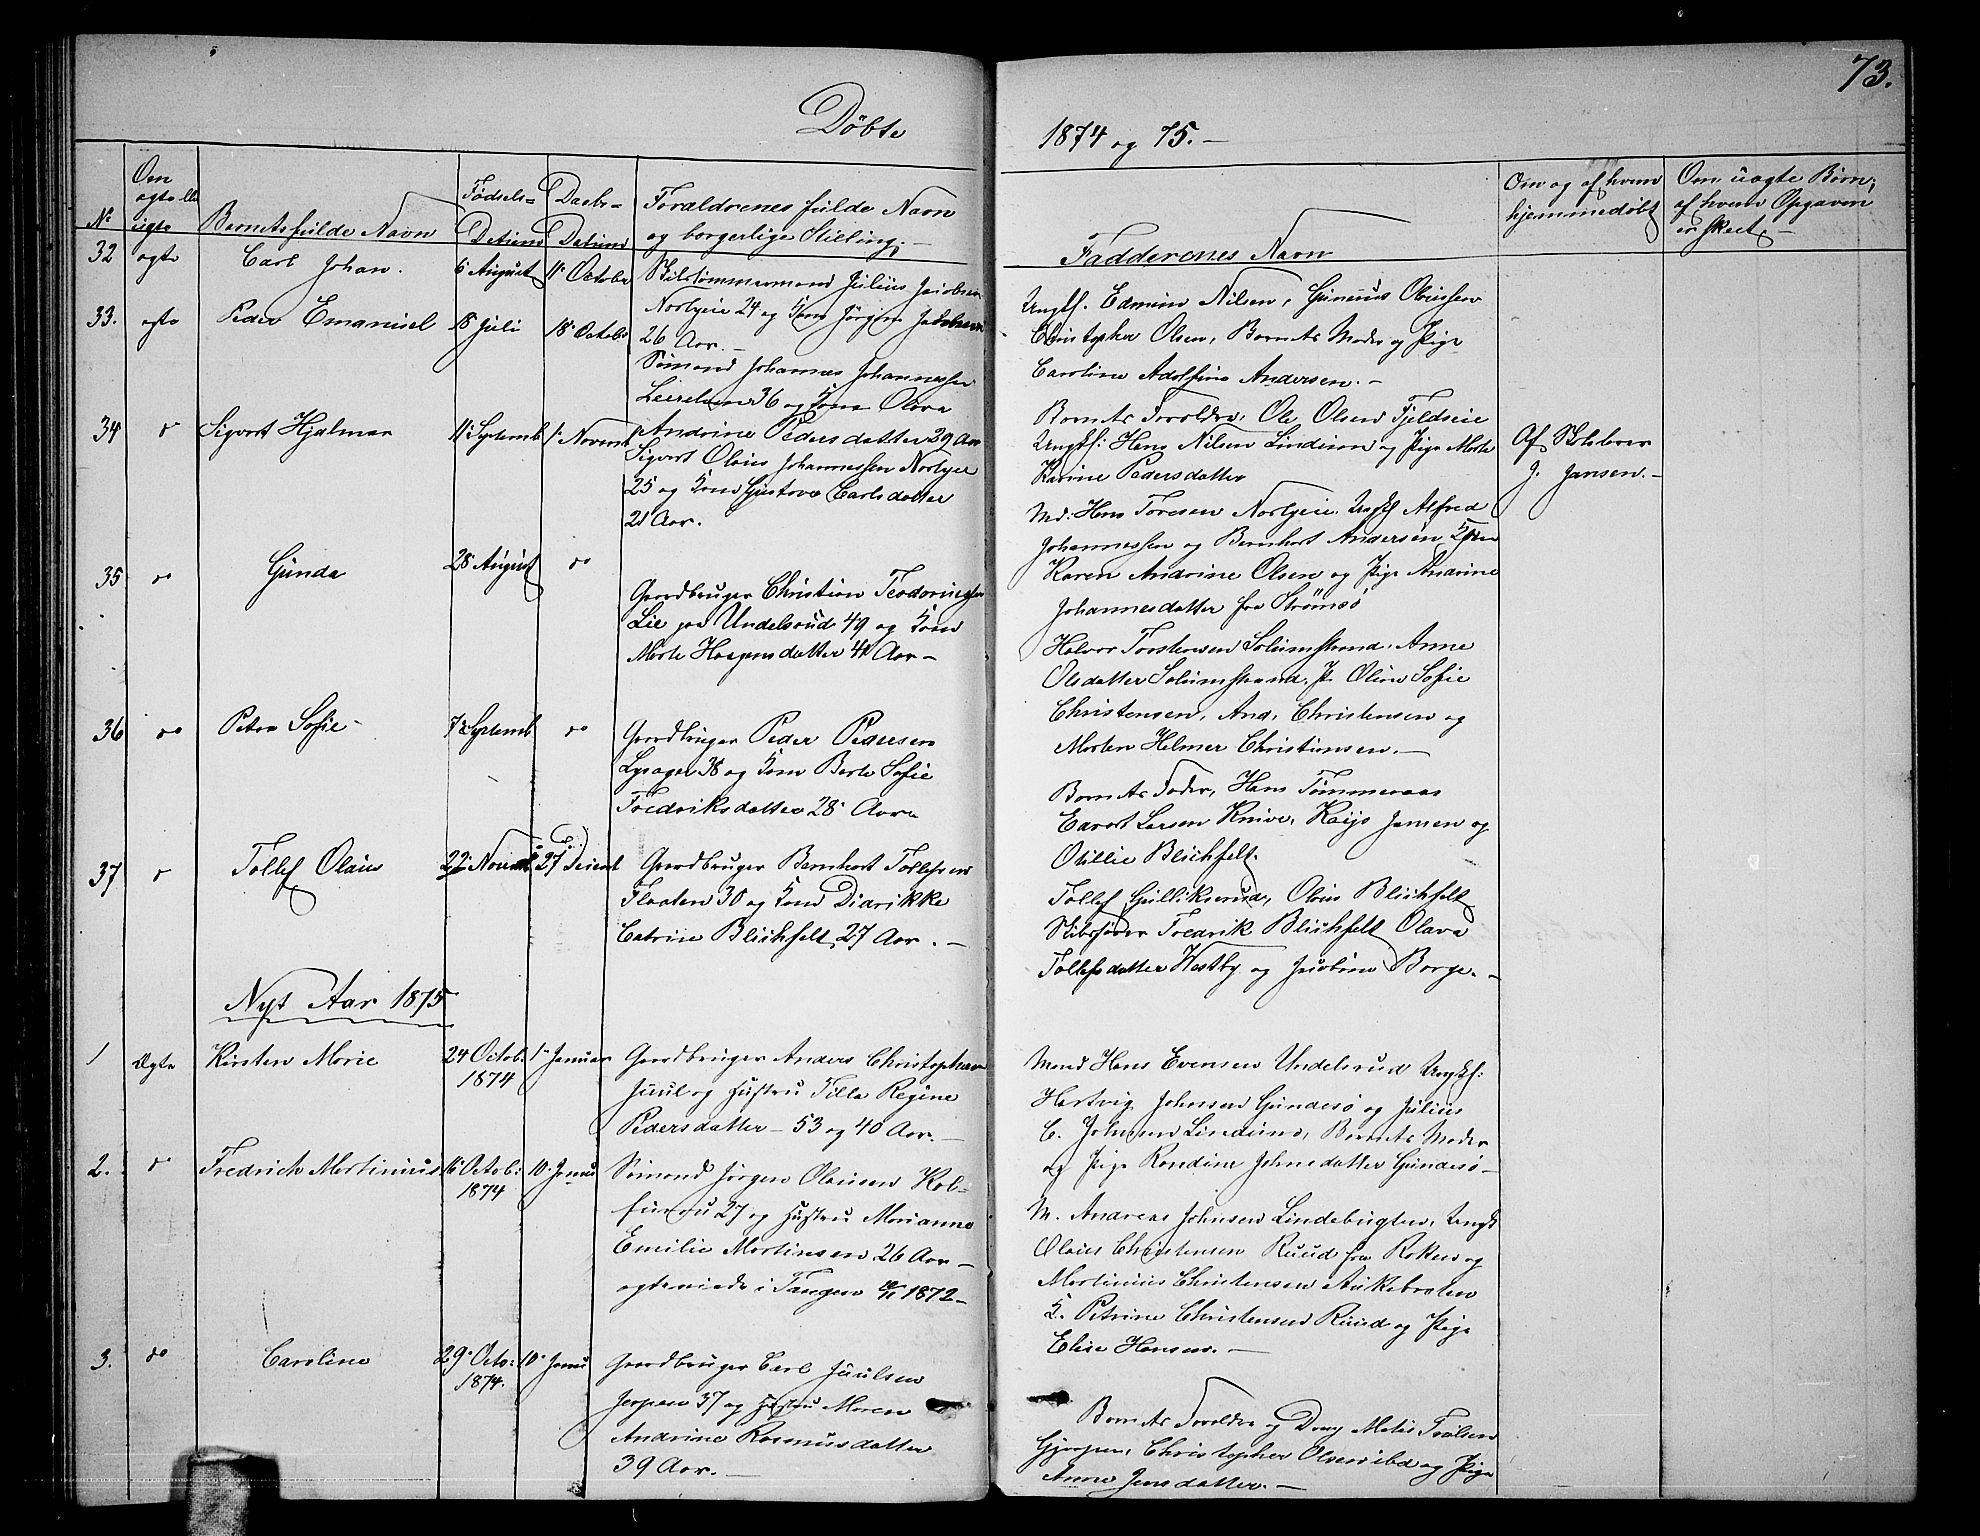 73.
Døbte
1874 og 75.-
No
Om ægte ell. uægte
Barnets fulde Navn
Fødsels-Datum
Daabs-Datum
Forældrenes fulde Navn
og borgerlige Stilling.-
Faddernes Navn
Om og af hvem
hjemmedøbt
Om uægte Børn,
af hvem Opgaven
er skeet.-
32 ægte Carl Johan. 6 August 11 Octobr
Julius Jacobsen
24 og Kone Jørgine Jacobsen
26 Aar.-
Ungk. Edmund Nilsen, Gunerius Olaussen
Christopher Olsen, Barnets Moder og Pige
Caroline Adolfine Andersen.-
33. ægte Peder Emanuel 18 Juli 18 Octobr
Sømand Johannes Johannessen
36 og Kone Olava
Andrine Pedersdatter 29 Aar
Barnets Forældre, Ole Olsen Fjeldseie
Ungk: Hans Nilsen Lindum og Pige Marte
Karine Pedersdatter
34 do Sigvart Hjalmar 11 Septemb 1 Novemb
Sigvart Olaus Johannessen
25 og Kone Gustava Carlsdatter
21 Aar.
Md: Hans Toresen Ungk Alfred
Johannessen og Bernhart Andersen, Kone
Karen Andrine Olsen og Pige Andrine
Johannesdatter fra Strømsø
Af Skolelærer
J. Jansen.-
35 do Gunda 28 August do
Gaardbruger Christian Teodoriussen
Lie paa Undelsrud 49 og Kone
Marte Haagensdatter 41 Aar-
Halvor Torstensen Solumstrand, Anne
Olsdatter Solumstrand, P. Oline Sofie
Christensen, And. Christensen og
Morten Helmer Christensen.-
36 do Petra Sofie- 7 Septemb do
Gaardbruger Peder Pedersen
Lysager 38 og Kone Berte Sofie
Fredriksdatter 28 Aar
Barnets Fader, Hans Tømmeraas
Edvart Larsen Knive, Kaijs Jansen og
Otillie Blichfelt.
37 do Tollef Olaus 22 Novemb 27 Decemb
Gaardbruger Bernhart Tollefsen
Flaaten 30 og Kone Diderikke
Catrine Blichfelt, 27 Aar.-
Tollef Gulliksrud, Olaus Blichfelt
Skibsfører Fredrik Blichfelt Olava
Tollefsdatter Hestby og Jacobine Borge.-
Nyt Aar 1875
1 Ægte Kirsten Marie 24 Octob. 1874 1 Januar
Gaardbruger Anders Christophersen
Juul og Hustru Tilla Regine
Pedersdatter- 53 og 40 Aar.-
Mand Hans Evensen Undelsrud Ungk:
Hartvig Johnsen Gundesø og Julius
C. Johnsen Lindum, Barnets Moder
og Pige Randine Johnsdatter Gundesø-
2. do Fredrich Martinius 16 Octob: 1874 10 Janu
Sømand Jørgen Olausen Kol-
27 og Hustru Marianne
Emilie Martinsen 26 Aar-
ægteviede i Tangen 1872-
M. Andreas Johnsen Lindebugten, Ungk
Olaus Christensen Ruud fra Røken og
Martinius Christensen
K. Petrine Christensen Ruud og Pige
Elise Hansen.-
3. do Caroline 29 Octo: 1874. 10 Janu
Gaardbruger Carl Juulsen
Jerpen 37 og Hustru Maren
Andrine Rasmusdatter
39 Aar.-
Barnets Forældre og Dreng
Christopher Olsen ibd og Pige
Anne Jensdatter.-